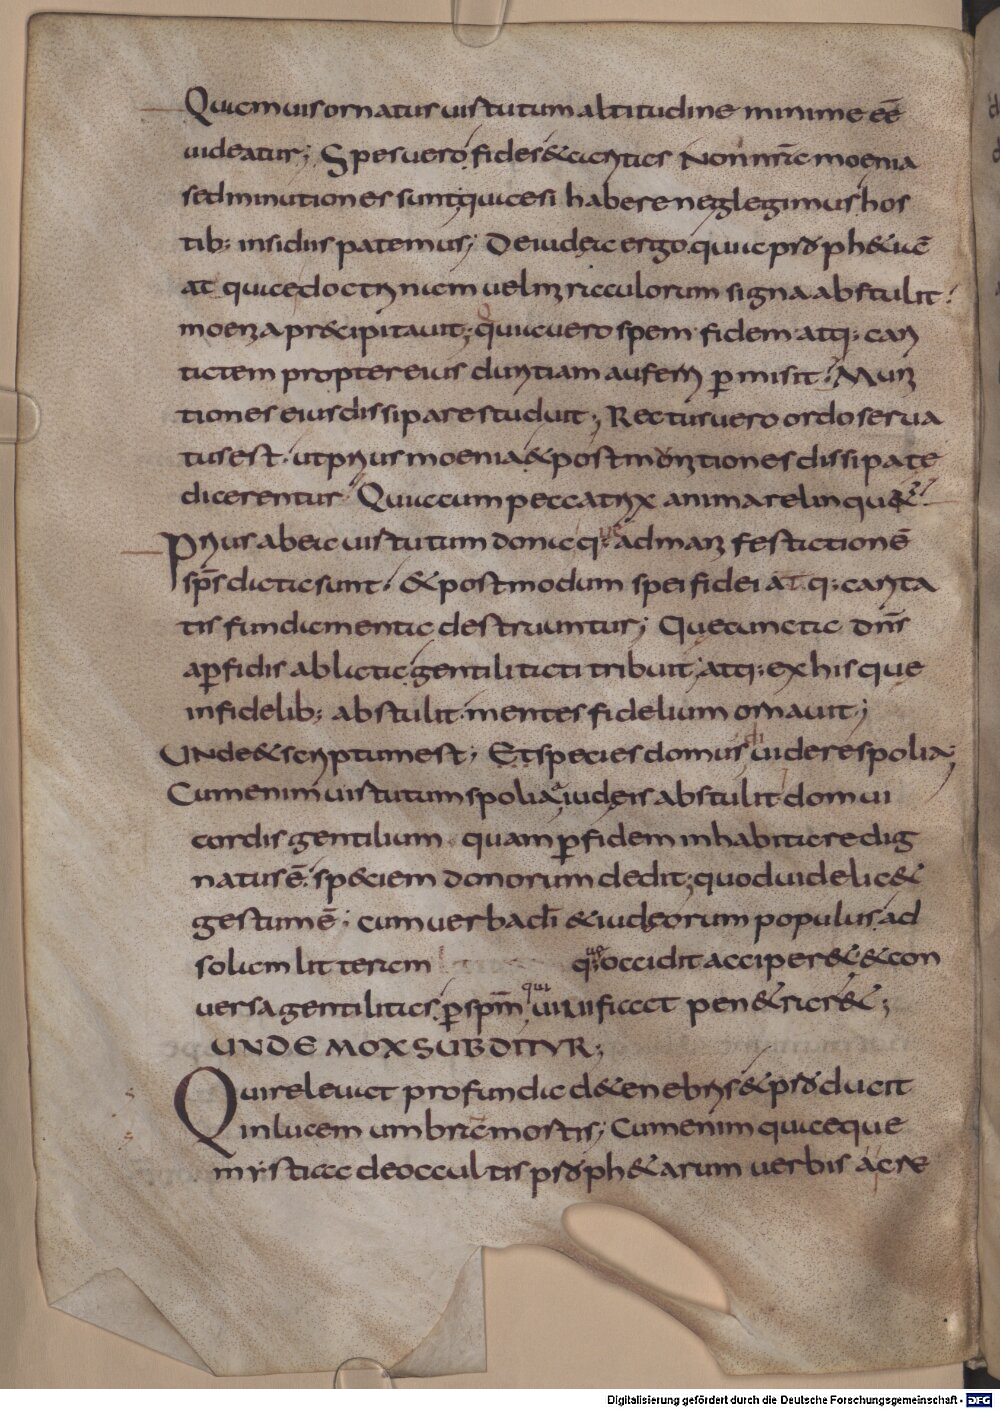 Quamuis ornatus uirtutum altitudine minime eē
uideatur; Spes uero fides & caritas Non nrāe moenia
sed munitiones sunt; quas si habere neglegimus hos
tib: insidiis patemus; De iudęa ergo. quia proph&auē
at quia ędoctrinam uel miraculorum signa abstulit.
moenia pr&cipitauit; quia uero spem fidem atq: cari
tatem propter eius duritiam auferri p̄misit. Muni
tiones eius dissipare studuit; Rectus uero ordo serua
tus est. ut prius moenia & post munitiones dissipate
dicerentur Quia cum peccatrix anima relinqu&.
Prius ab ea uirtutum donaq: ad manifestationē
sp̄s data sunt. & postmodum spei fidei atq: carita
tis fundamenta destruuntur; Que cuncta dn̄s
a p̄fidis ablata gentilitati tribuit, atq: ex his que
infidelib: abstulit mentes fidelium ornauit;
UNde & scriptum est; Et species domus diuidere spolia;
Cum enim uirtutum spolia, a iudęis abstulit domui
cordis gentilium quam p̄ fidem inhabitare dig
natus ē. sp&ciem donorum dedit; quod uidelic&
gestum ē; cum uerba dī & iudęorum populus ad
solam litteram quę occidit acciper& & con
uersa gentilitas. p̄ spm̄ qui uiuificat pen&rar&;
UNDE MOX SUBDITUR;
Qui releuat profunda d& enebris & producit
in lucem umbrāe mortis; Cum enim quaeque
mystica de occultis proph&arum uerbis a cre
Digitalisierung gefördert durch die Deutsche Forschungsgemeinschaft - DFG